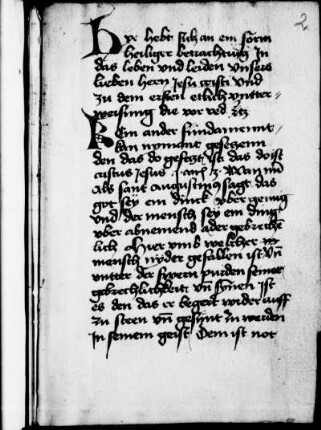 2
Hye hebt sich an ein form
heiliger betrachtung In
das leben vnd leiden vnsers
lieben hern Jesu cristi Vnd
zu dem ersten etlich vntter-
weisung die vor red etc
Kein ander fundamennt
kan nymant gesetzenn
den das do gesetzt ist das do ist
cristus Jesus
Als sant augustinus sagt das
got sey ein dinck vber genug
vnd der mensch sey ein ding
vber abnemend ader gebrechen
lich Hier vmb welcher
mensch nyder gefallen ist vn
vntter der swern purden seiner
gebrechlichkeit vn synen Ist
es den das er begert wider auff
zu steen vn gesunt zu werden
In seinem geist Dem ist not